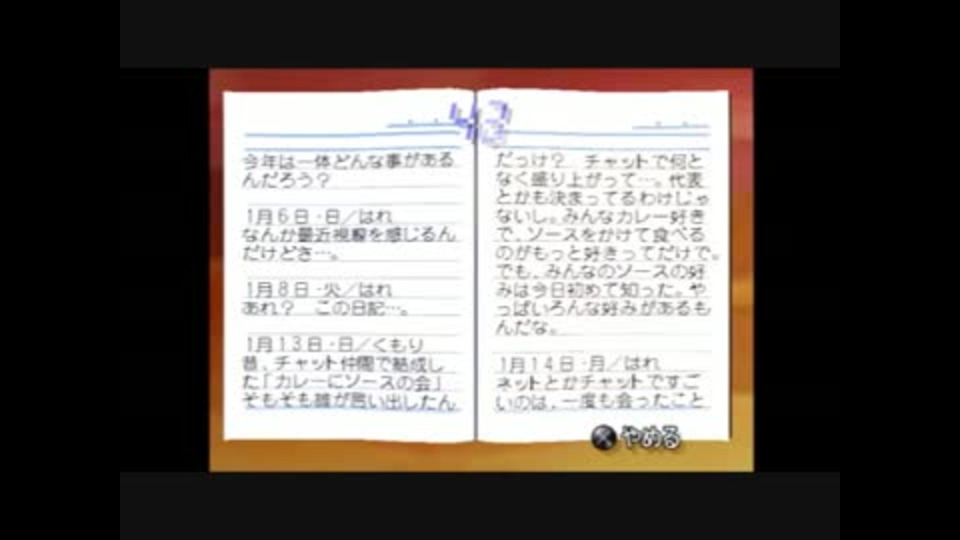 今年は一体どんな事がある
んだろう？
1月6日・日／はれ
なんか最近視線を感じるん
だけどさ…。
1月8日・火／はれ
あれ？　この日記…。
1月13日・日／くもり
昔、チャット仲間で結成し
た「カレーにソースの会」
そもそも誰が言い出したん
だっけ？　チャットで何と
なく盛り上がって…。代表
とかも決まってるわけじゃ
ないし。みんなカレー好き
で、ソースをかけて食べる
のがもっと好きってだけで。
でも、みんなのソースの好
みは今日初めて知った。や
っぱいろんな好みがあるも
んだな。
1月14日・月／はれ
ネットとかチャットですご
いのは、一度も会ったこと
やめる